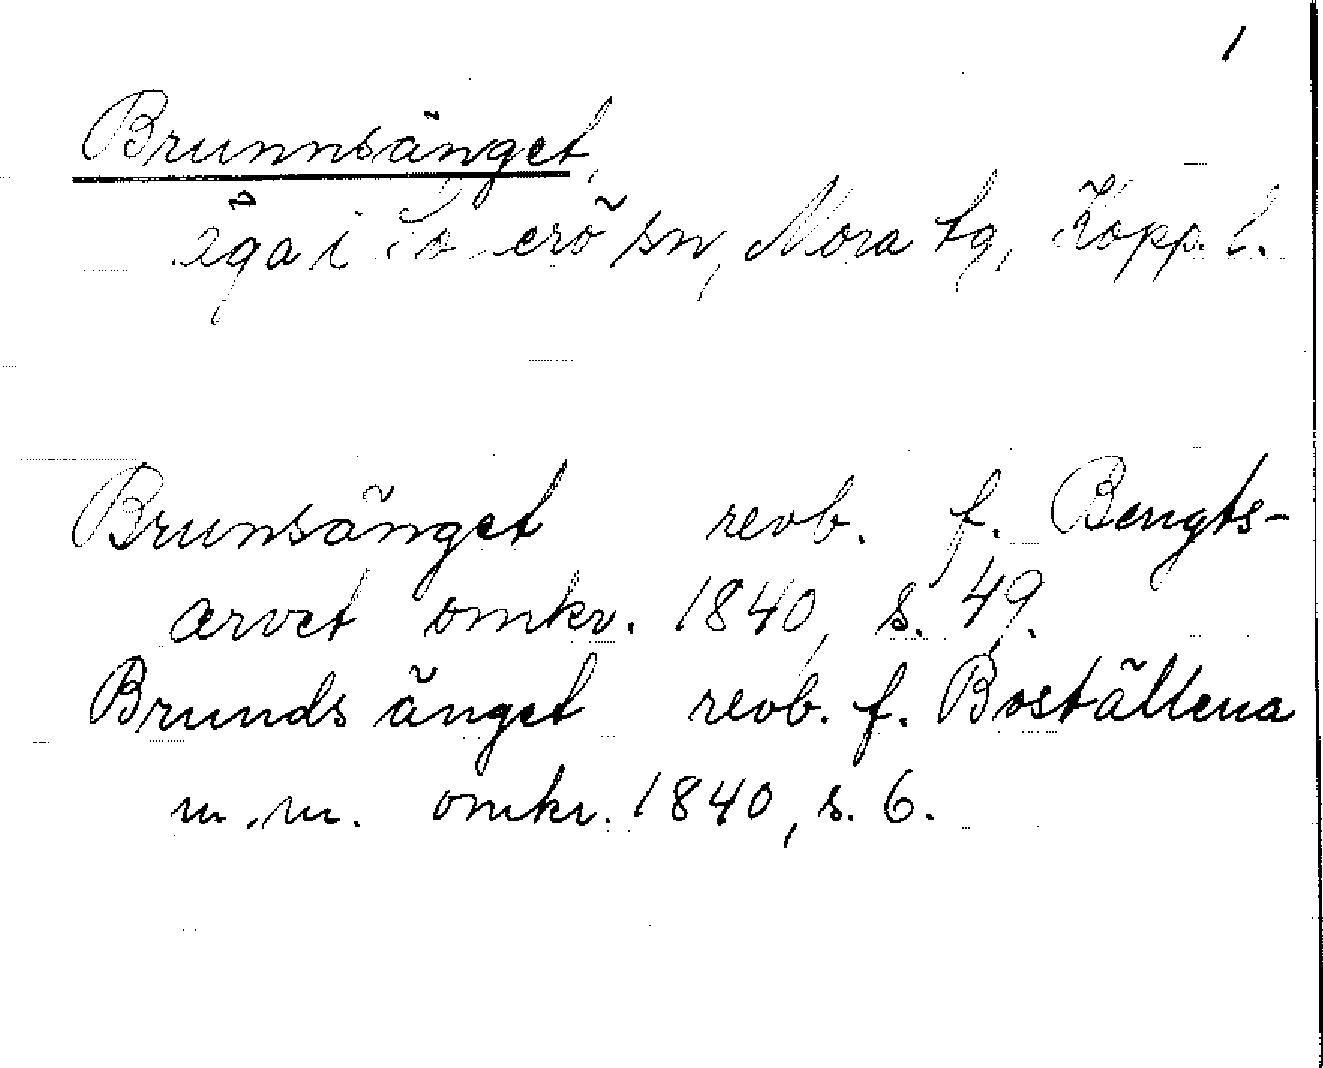 1
Brunnsänget,
äga i Sollerö sn, Mora tg, Kopp. l.
Brunsänget revb. f. Bengts-
arvet omkr. 1840, s. 49.
Brunds änget revb. f. Boställena
m.m. omkr. 1840, s. 6.